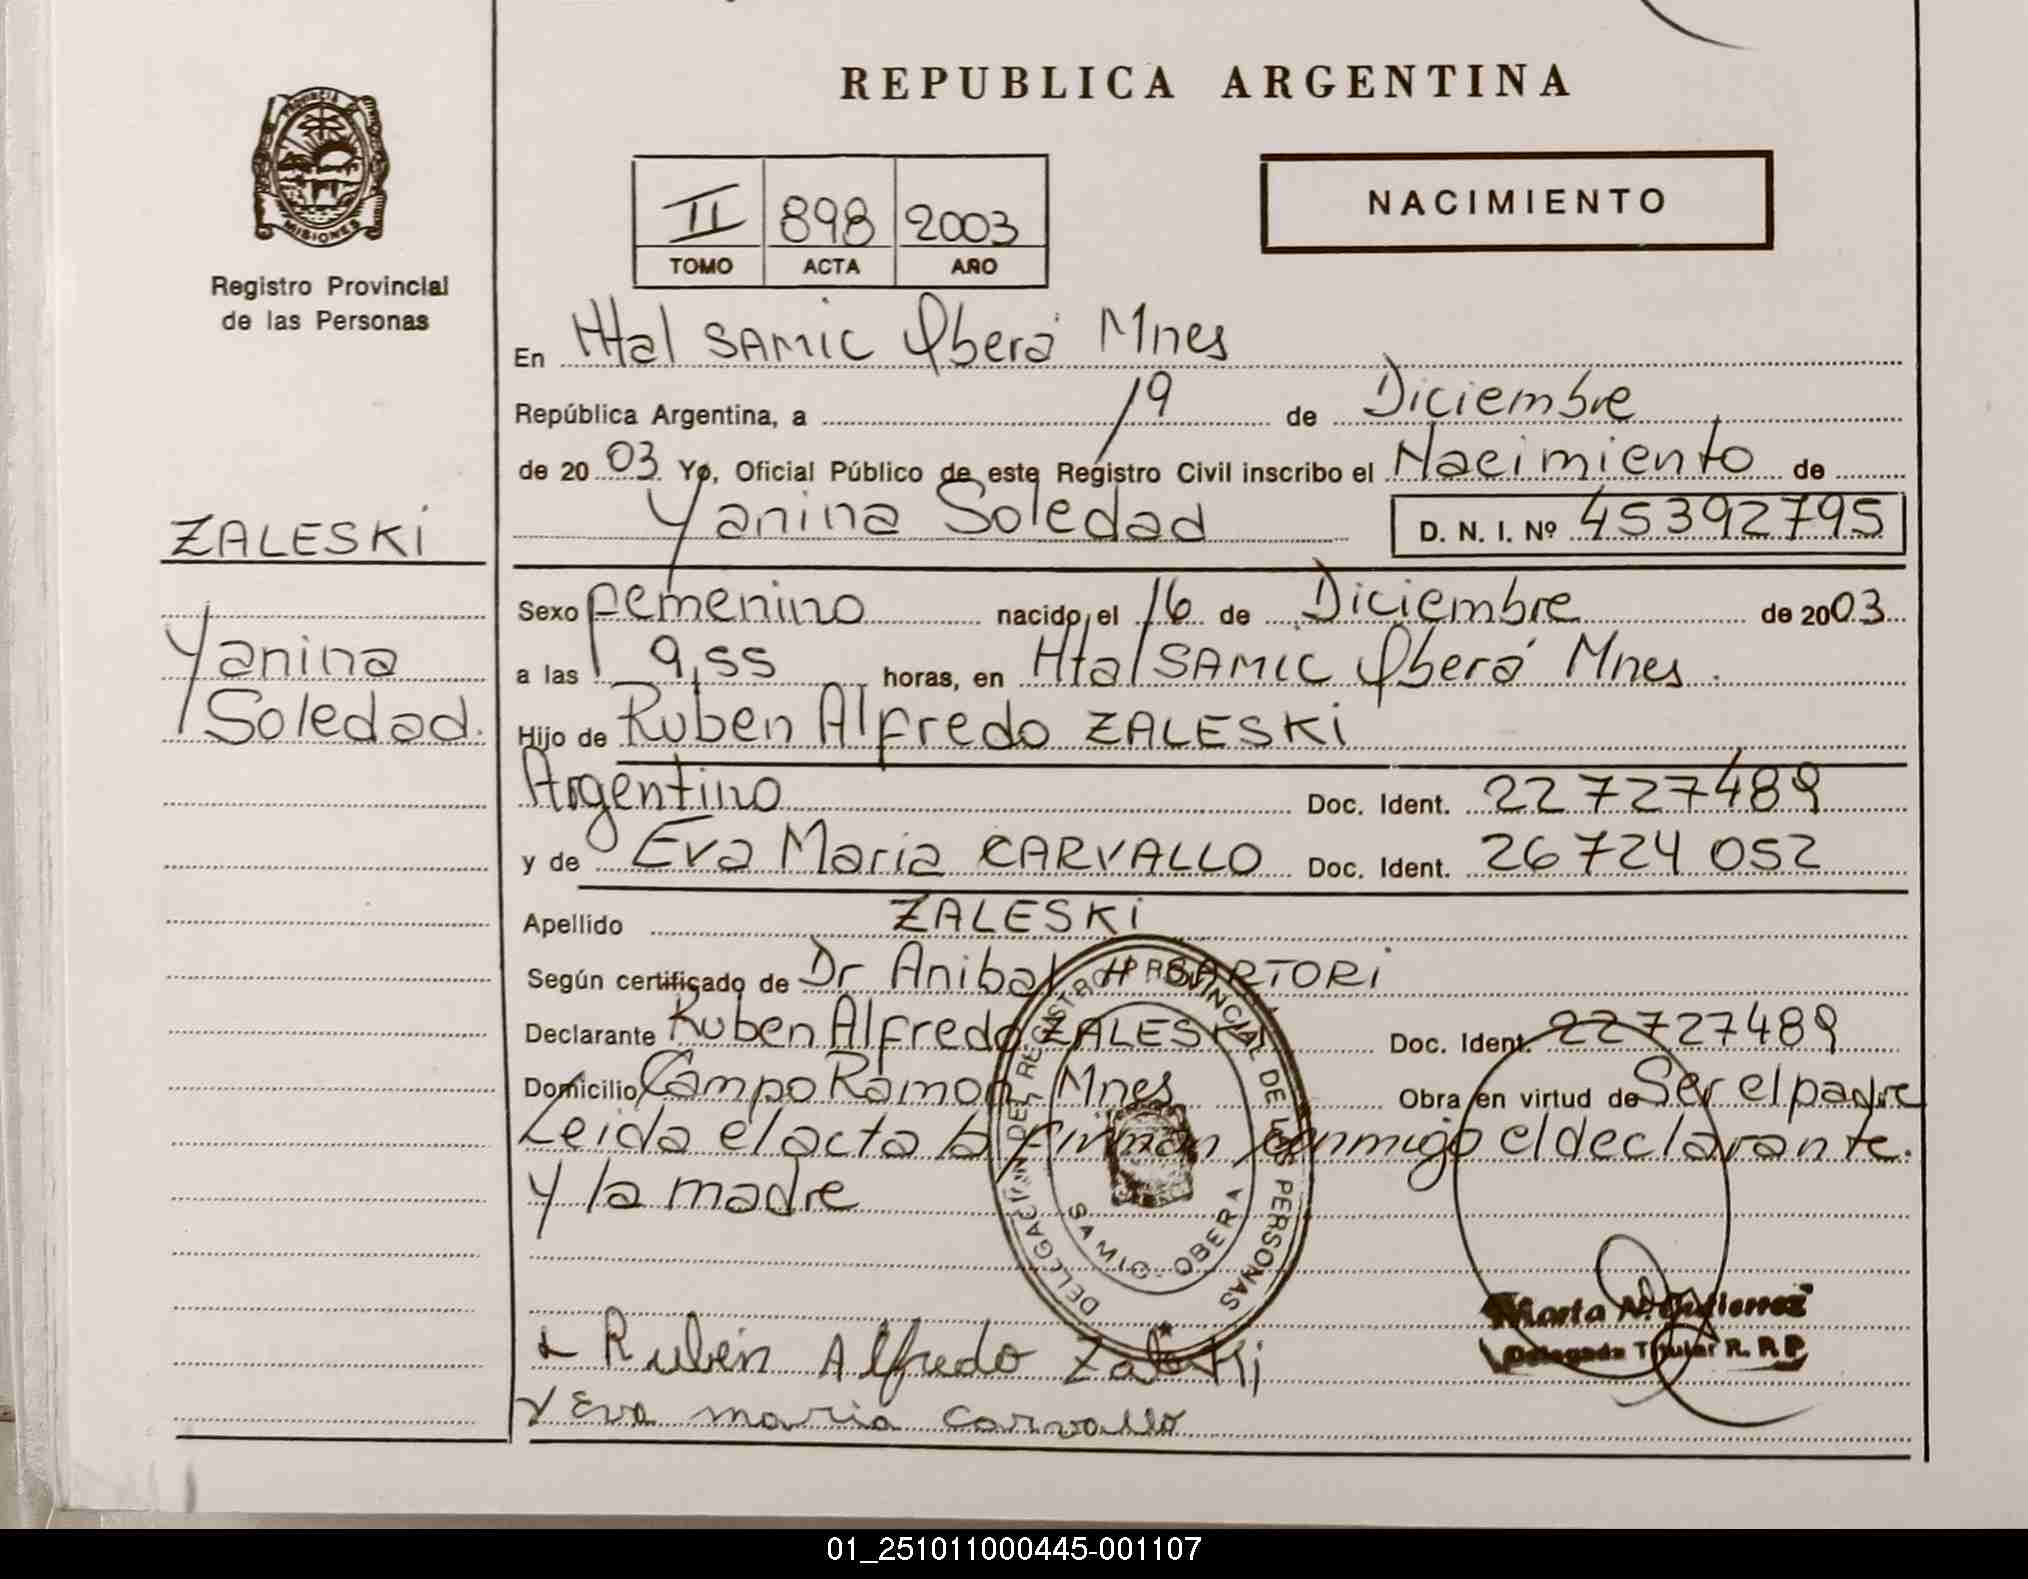 REPUBLICA ARGENTINA
PROVINCIA DE MISIONES
II 898 2003
TOMO ACTA AÑO
NACIMIENTO
Registro Provincial
de las Personas
En Htal SAMIC Oberá Mnes
República Argentina, a 19 de Diciembre
de 2003 Yo, Oficial Público de este Registro Civil inscribo el Nacimiento de
Yanina Soledad D. N. I. Nº 45392795
ZALESKI
Yanina
Soledad.
Sexo Femenino nacido el 16 de Diciembre de 2003
a las 9,55 horas, en Htal SAMIC Oberá Mnes.
Hijo de Ruben Alfredo ZALESKI
Argentino Doc. Ident. 22727489
y de Eva Maria CARVALLO Doc. Ident. 26724052
Apellido ZALESKI
Según certificado de Dr Anibal H SARTORI
Declarante Ruben Alfredo ZALESKI Doc. Ident. 22727489
Domicilio Campo Ramon Mnes Obra en virtud de Ser el padre
Leida el acta la firman conmigo el declarante.
y la madre
DELEGACION DEL REGISTRO PROVINCIAL DE LAS PERSONAS
SAMIC - OBERA
Marta N. Gutierrez
Delegada Titular R. P. P.
Rubén Alfredo Zaleski
Eva maria carvallo
01_251011000445-001107